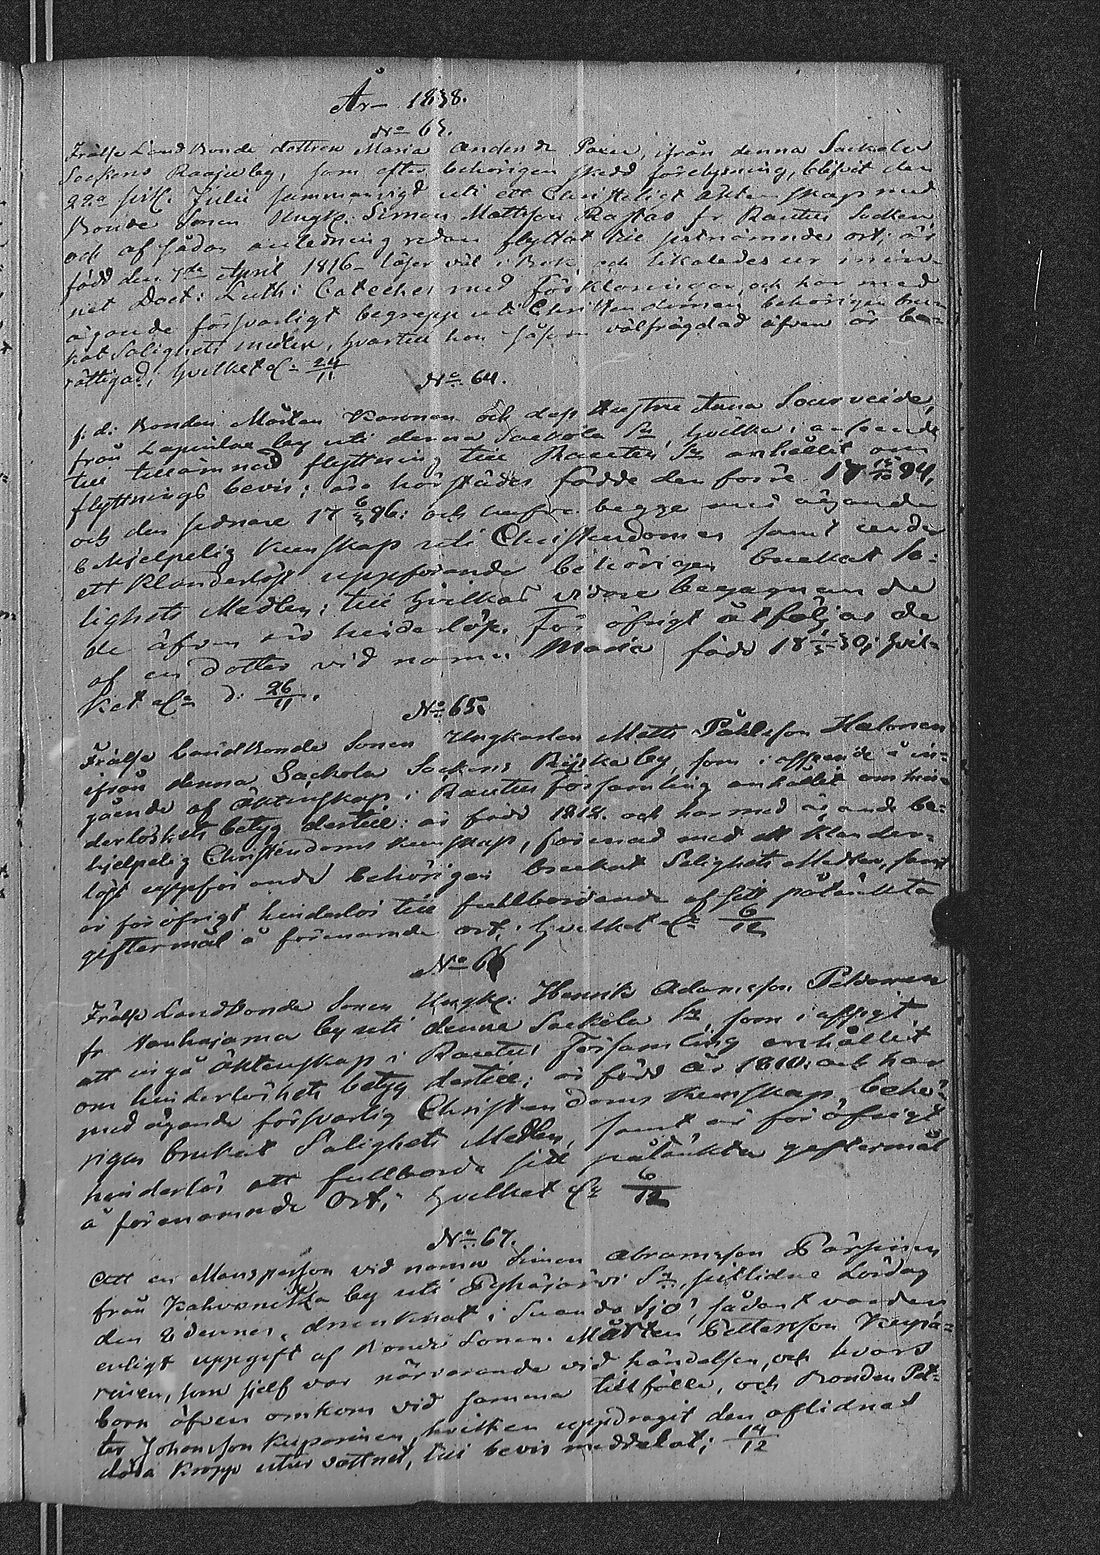 År 1838.
No 63.
Frälse Landbonde dottren Maria Andersdr Paxu, ifrån denna Sackola
Sockens Raaju by, som efter behörigen skedd förelysning, blifvit den
22a sistl. Julii sammanvigd uti ett Christeligt äktenskap med
Bonde Sonen Ungk. Simon Mattsson Rastas fr Rautus Socken
och af sådan anledning redan flyttat till sistnämnde ort; är
född den 7de April 1816 läser väl i Bok och likaledes ur min-
net Doct: Luth: Cateches med Förklaringar, och har med
ägande försvarligt begrepp uti Christendomen behörigen bru-
kat Salighets medlen, hvartill hon såsom välfrägdad äfven är be-
rättigad, hvilket &c 24/11
No 64.
f. d. Bonden Mårten Karonen och dess Hustru Anna Sourveide,
från Lapinlax by uti denna Sackola Sn, hvilka i anseende
till tillämnad flyttning till Rautus Sn anhållit om
flyttnings bevis; äro härstädes födde den förre 17 12/10 94,
och den sednare 17 6/3 96: och hafva begge med ägande
behjelpelig kunskap uti Christendomen samt under
ett klanderlöst uppförande behörigen brukat Sa-
lighets Medlen; till hvilkas vidare begagnande
de äfven äro hinderlöse. För öfrigt åtföljas de
af en dotter vid namn Maria född 18 1/5 30; hvil-
ket &c d: 26/11.
No 65.
Frälse landbonde Sonen Ungkarlen Matts Påhlsson Halonen
ifrån denna Sackola Sockens Riiska by, som i afseende å in-
gående af äktenskap i Rautus församling anhållit om hin-
derlöshets betyg dertill: är född 1812. och har med ägande be-
hjelpelig Christendoms kunskap, förenad med ett klander-
löst uppförande behörigen brukat Salighets Medlen, samt
är för öfrigt hinderlös till fullbordande af sitt påtänkta
giftermål å förenämnde ort; hvilket &c 6/12
No 66
Frälse Landbonde Sonen Ungk: Henrik Adamsson Pekonen
fr Haukajama by uti denna Sackola Sn, som i afsigt
att ingå äktenskap i Rautus Församling anhållit
om hinderlöshets betyg dertill; är född år 1810: och har
med ägande försvarlig Christendoms kunskap behö-
rigen brukat Salighets Medlen, samt är för öfrigt
hinderlös att fullborda sitt påtänkta giftermål
å förenämnde Ort; hvilket &c 6/12
No 67.
Att en Mansperson vid namn Simon Abramsson Pärssinen
från Kahvenitka by uti Pyhäjärvi Sn sistlidne Lördag
den 8 dennes, drunknat i Suando Sjö, sådant varden
enligt uppgift af Bonde Sonen Mårten Pettersson Kupa-
rinen, som sjelf var närvarande vid händelsen, och hvars
born äfven omkom vid samma tillfälle, och Bonden Pet-
ter Johansson Kuparinen, hvilken uppdragit den aflidnes
döda kropp utur vattnet, till bevis meddelat; 14/12